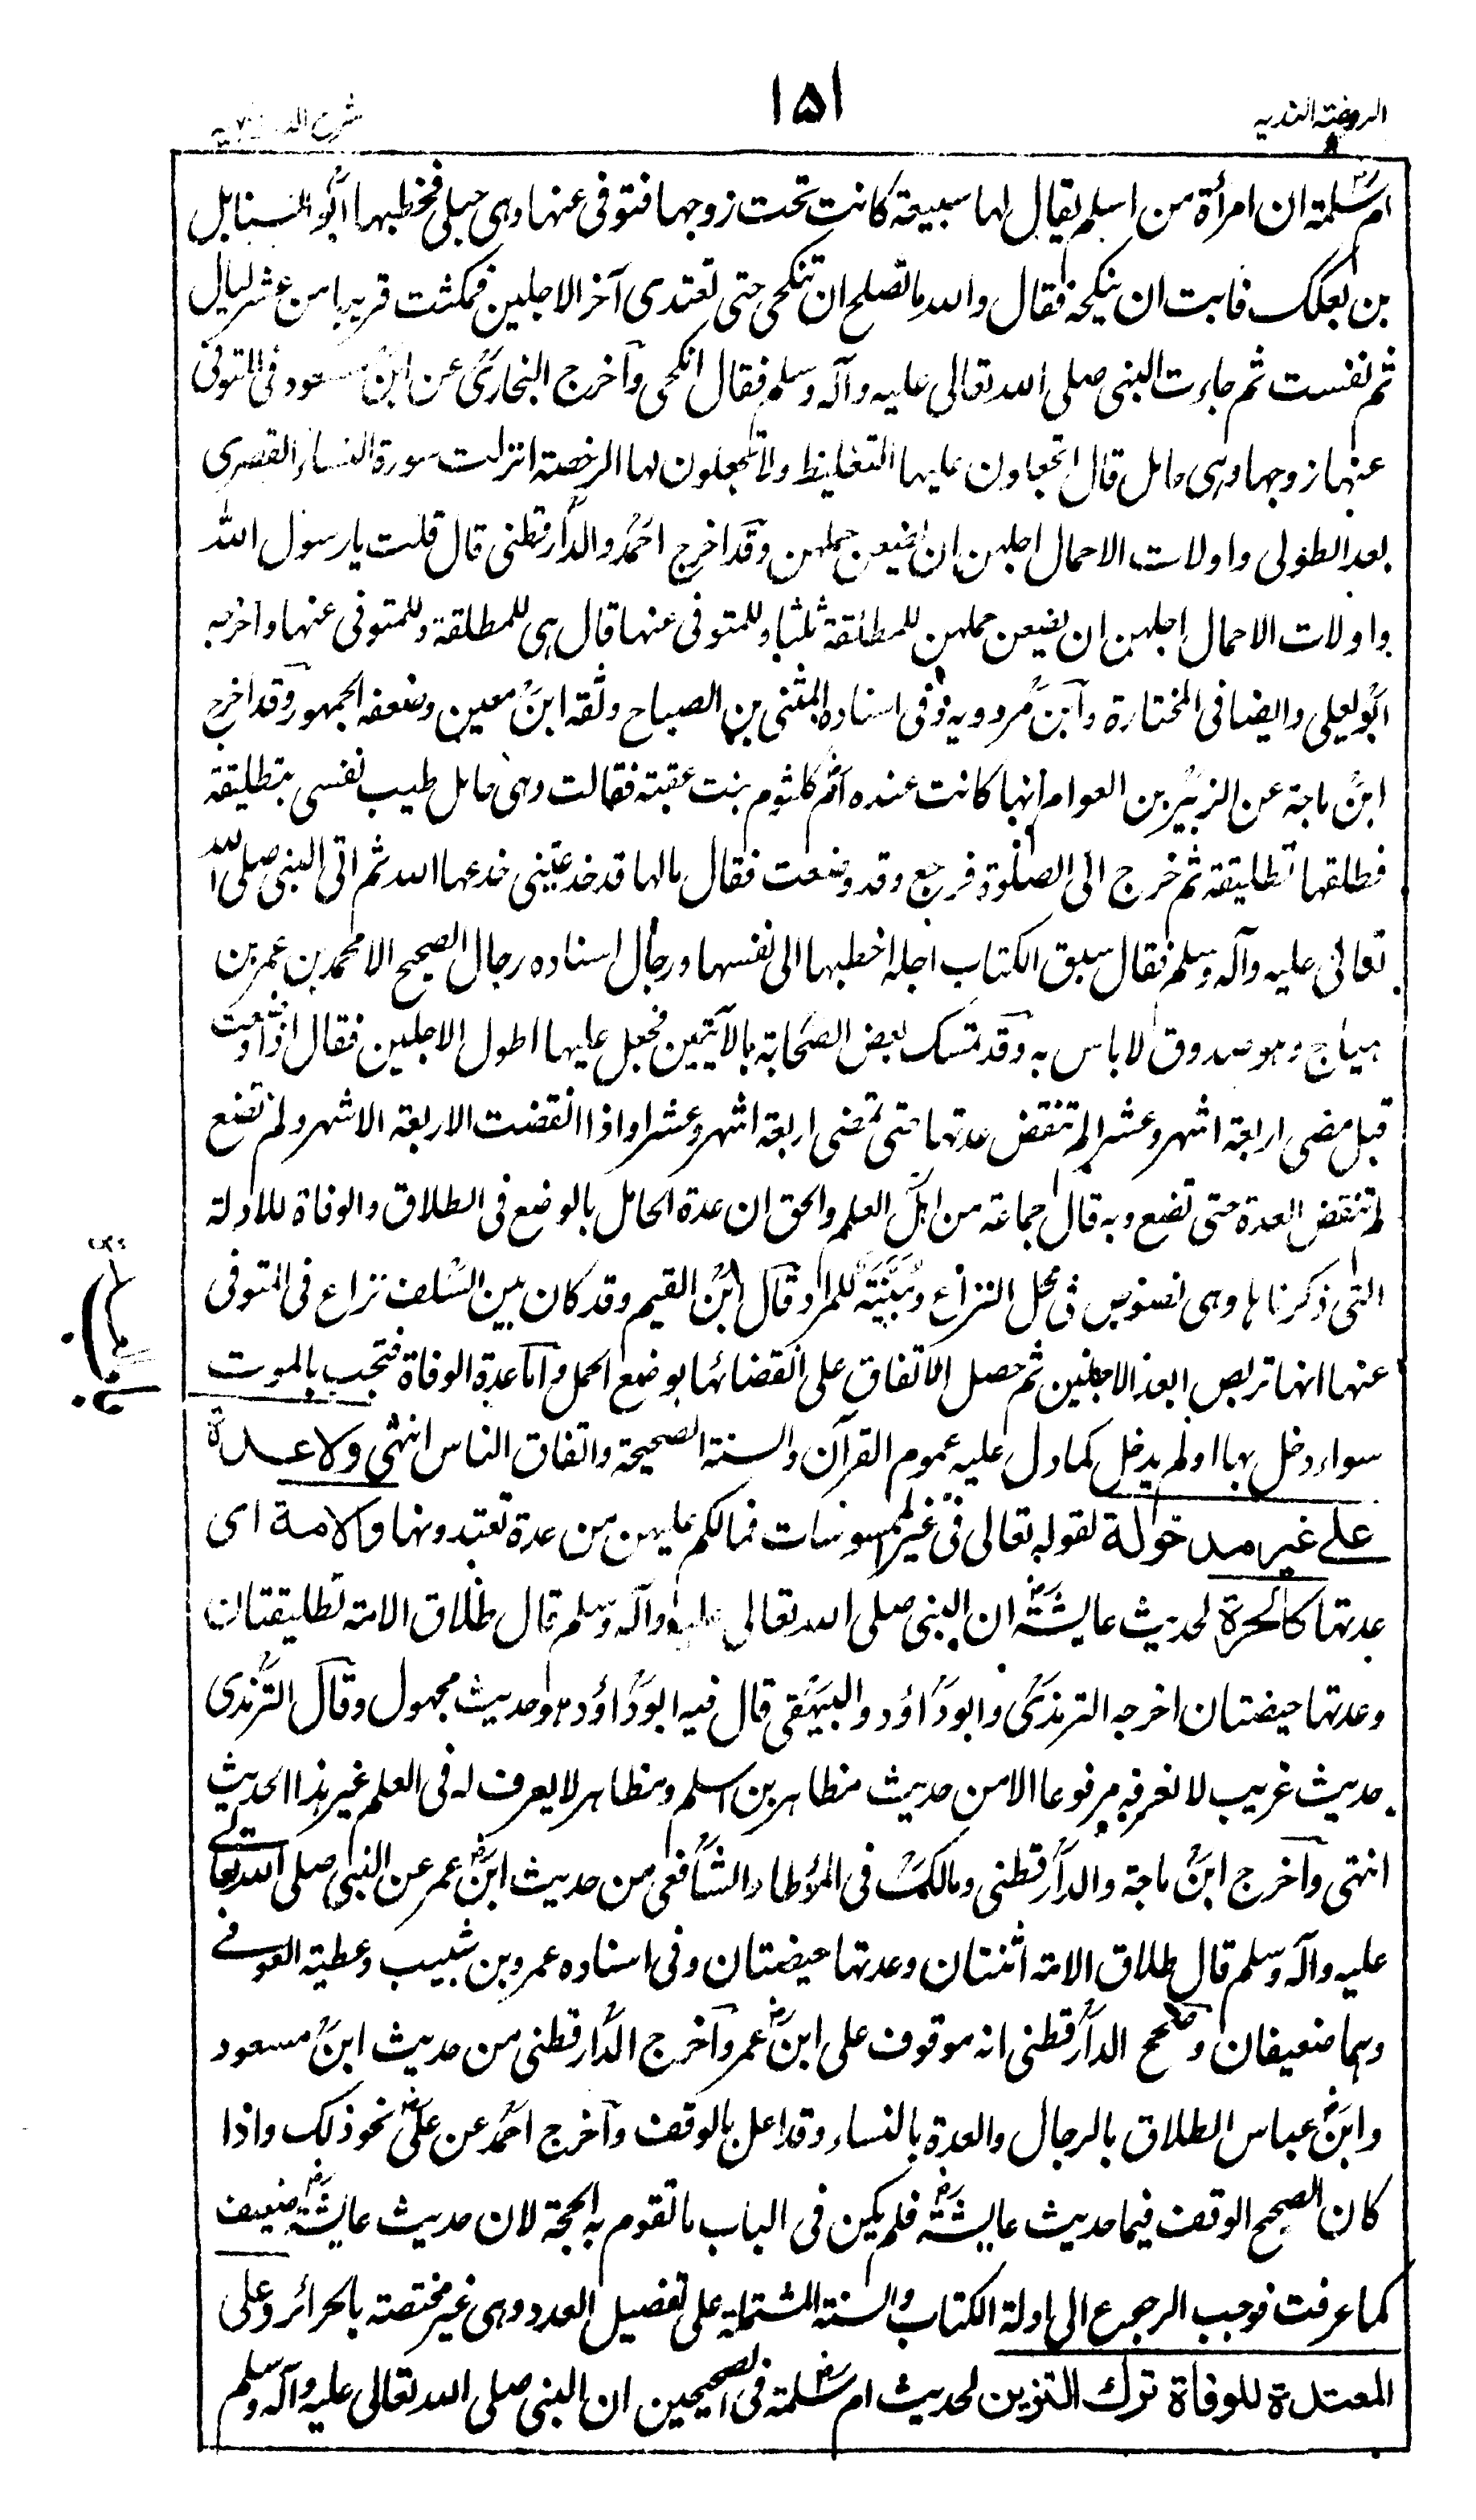 الروضة الندية
١٥١
شرح الدرر البهية
ام سلمة ان امرأة من اسلم يقال لها سبيعة كانت تحت زوجها فتوفى عنها وهى حبلى فخطبها ابو السنابل
بن بعكك فابت ان ينكحه فقال والله ما تصلح ان تنكحى حتى تعتدى آخر الاجلين فمكثت قريبا من عشر ليال
ثم نفست ثم جاءت النبى صلى الله تعالى عليه وآله وسلم فقال انكحى وآخرج البخارى عن ابن مسعود فى المتوفى
عنها زوجها وهى حامل قال اتجعلون عليها التغليظ ولا تجعلون لها الرخصة انزلت سورة النساء القصرى
بعد الطولى واولات الاحمال اجلهن ان يضعن حملهن وقد اخرج احمد والدارقطنى قال قلت يا رسول الله
واولات الاحمال اجلهن ان يضعن حملهن للمطلقة ثلثا وللمتوفى عنها قال هى للمطلقة وللمتوفى عنها واخرجه
ابو يعلى والضيا فى المختارة وابن مردويه وفى اسناده المثنى بن الصباح وثقه ابن معين وضعفه الجمهور وقد اخرج
ابن ماجة عن الزبير بن العوام انها كانت عنده ام كلثوم بنت عقبة فقالت وهى حامل طيب نفسى بتطليقة
فطلقها تطليقة ثم خرج الى الصلوة فرجع وقد وضعت فقال مالها قد خدعتينى خدعها الله ثم اتى النبى صلى الله
تعالى عليه وآله وسلم فقال سبق الكتاب اجله اخطبها الى نفسها ورجال اسناده رجال الصحيح الا محمد بن عمر بن
هياج وهو صدوق لا باس به وقد تمسك بعض الصحابة بالآيتين فجعل عليها اطول الاجلين فقال اذا وضعت
قبل مضى اربعة اشهر وعشر لم تنقض عدتها حتى تمضى اربعة اشهر وعشرا واذا انقضت الاربعة الاشهر ولم تضع
لم تنقض العدة حتى تضع وبه قال جماعة من اهل العلم والحق ان عدة الحامل بالوضع فى الطلاق والوفاة للادلة
التى ذكرناها وهى نصوص فى محل النزاع ومبينة للمراد قال ابن القيم وقد كان بين السلف نزاع فى المتوفى
عنها انها تربص ابعد الاجلين ثم حصل الاتفاق على انقضائها بوضع الحمل واما عدة الوفاة فتجب بالموت
سواء دخل بها او لم يدخل كما دل عليه عموم القرآن والسنة الصحيحة واتفاق الناس انتهى ولا عدة
على غير مدخولة لقوله تعالى فى غير الممسوسات فمالكم عليهن من عدة تعتدونها والامة اى
عدتها كالحرة لحديث عايشة ان النبى صلى الله تعالى عليه وآله وسلم قال طلاق الامة تطليقتان
وعدتها حيضتان اخرجه الترمذى وابو داؤد والبيهقى قال فيه ابو داؤد هو حديث مجهول وقال الترمذى
حديث غريب لا نعرفه مرفوعا الا من حديث مظاهر بن اسلم ومظاهر لا يعرف له فى العلم غير هذا الحديث
انتهى وآخرج ابن ماجة والدارقطنى ومالك فى الموطا والشافعى من حديث ابن عمر عن النبى صلى الله تعالى
عليه وآله وسلم قال طلاق الامة اثنتان وعدتها حيضتان وفى اسناده عمرو بن شبيب وعطية العوفى
وهما ضعيفان وصحح الدارقطنى انه موقوف على ابن عمر وآخرج الدارقطنى من حديث ابن مسعود
وابن عباس الطلاق بالرجال والعدة بالنساء وقد اعل بالوقف وآخرج احمد عن على نحو ذلك واذا
كان الصحيح الوقف فيما حديث عايشة فلم يكن فى الباب ما تقوم به الحجة لان حديث عايشة ضعيف
كما عرفت فوجب الرجوع الى ادلة الكتاب والسنة المشتملة على تفصيل العدد وهى غير مختصة بالحرائر وعلى
المعتدة للوفاة ترك التزين لحديث ام سلمة فى الصحيحين ان النبى صلى الله تعالى عليه وآله وسلم